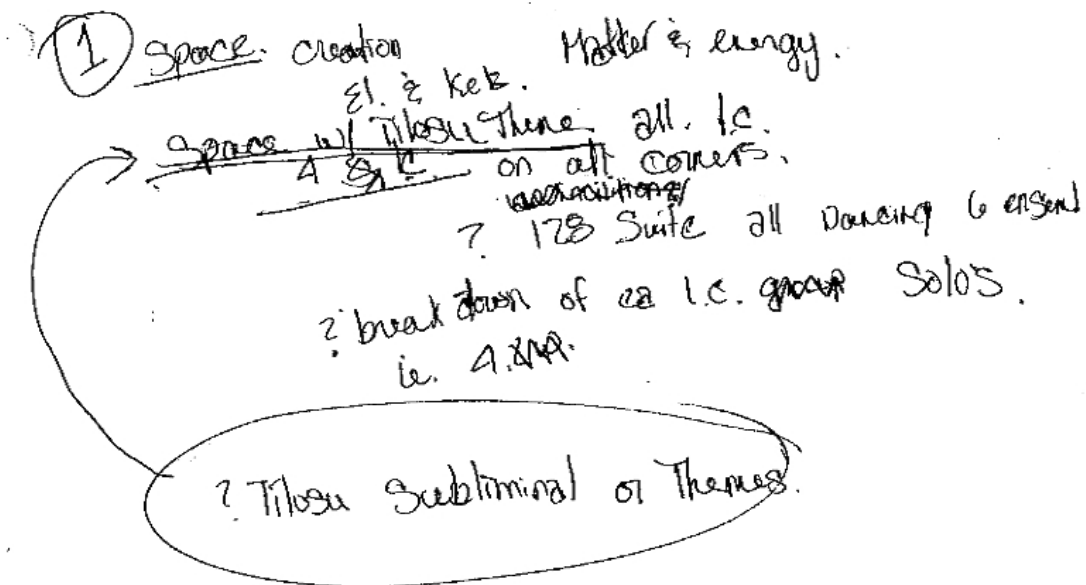 1 Space. creation Matter & energy.
El. & Kek.
Space w/ Tilosu Theme all. I.C.
4 on all corners.
? 128 Suite all Dancing 6 ensem
? break down of ea I.C. group Solos.
ie. 4.
? Tilosu Subliminal or Themes.